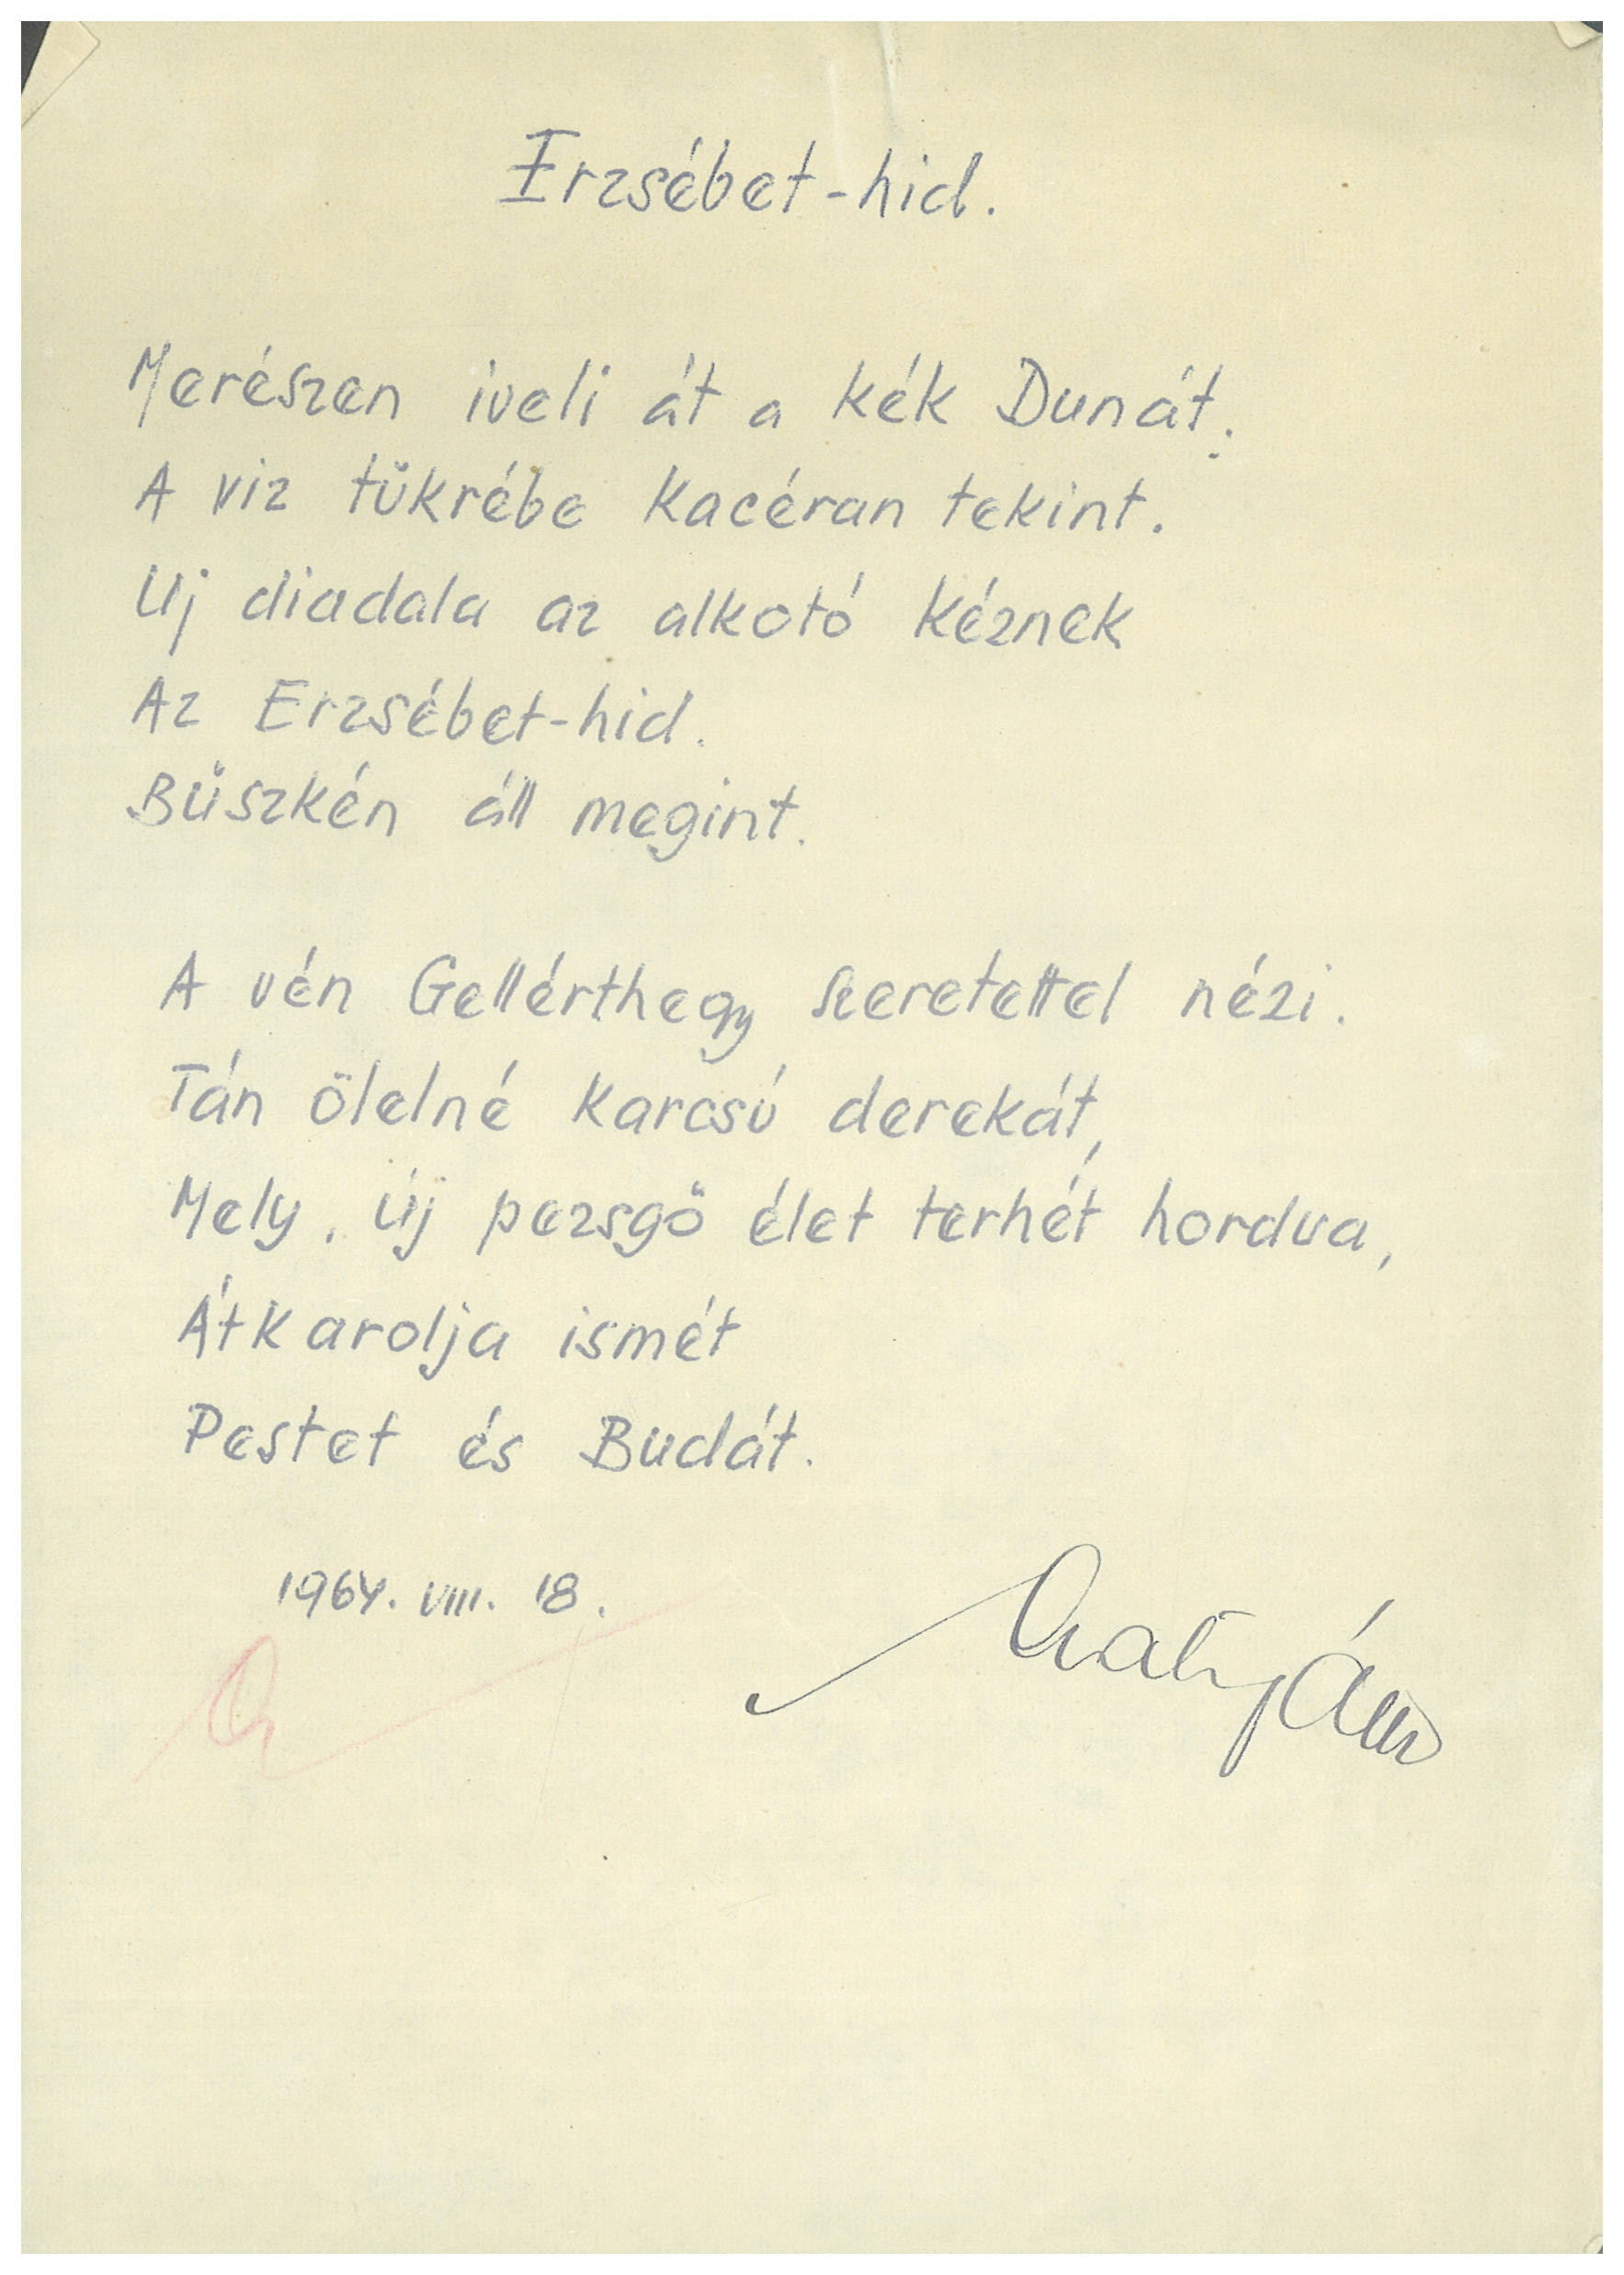 Erzsébet-hid.
Merészen iveli át a kék Dunát.
A viz tükrébe kacéran tekint.
Uj diadala az alkotó kéznek
Az Erzsébet-hid.
Büszkén áll megint.
A vén Gellérthegy szeretettel nézi.
Tán ölelné karcsú derekát,
Mely, új pezsgő élet terhét hordva,
Átkarolja ismét
Pestet és Budát.
1964. VIII. 18.